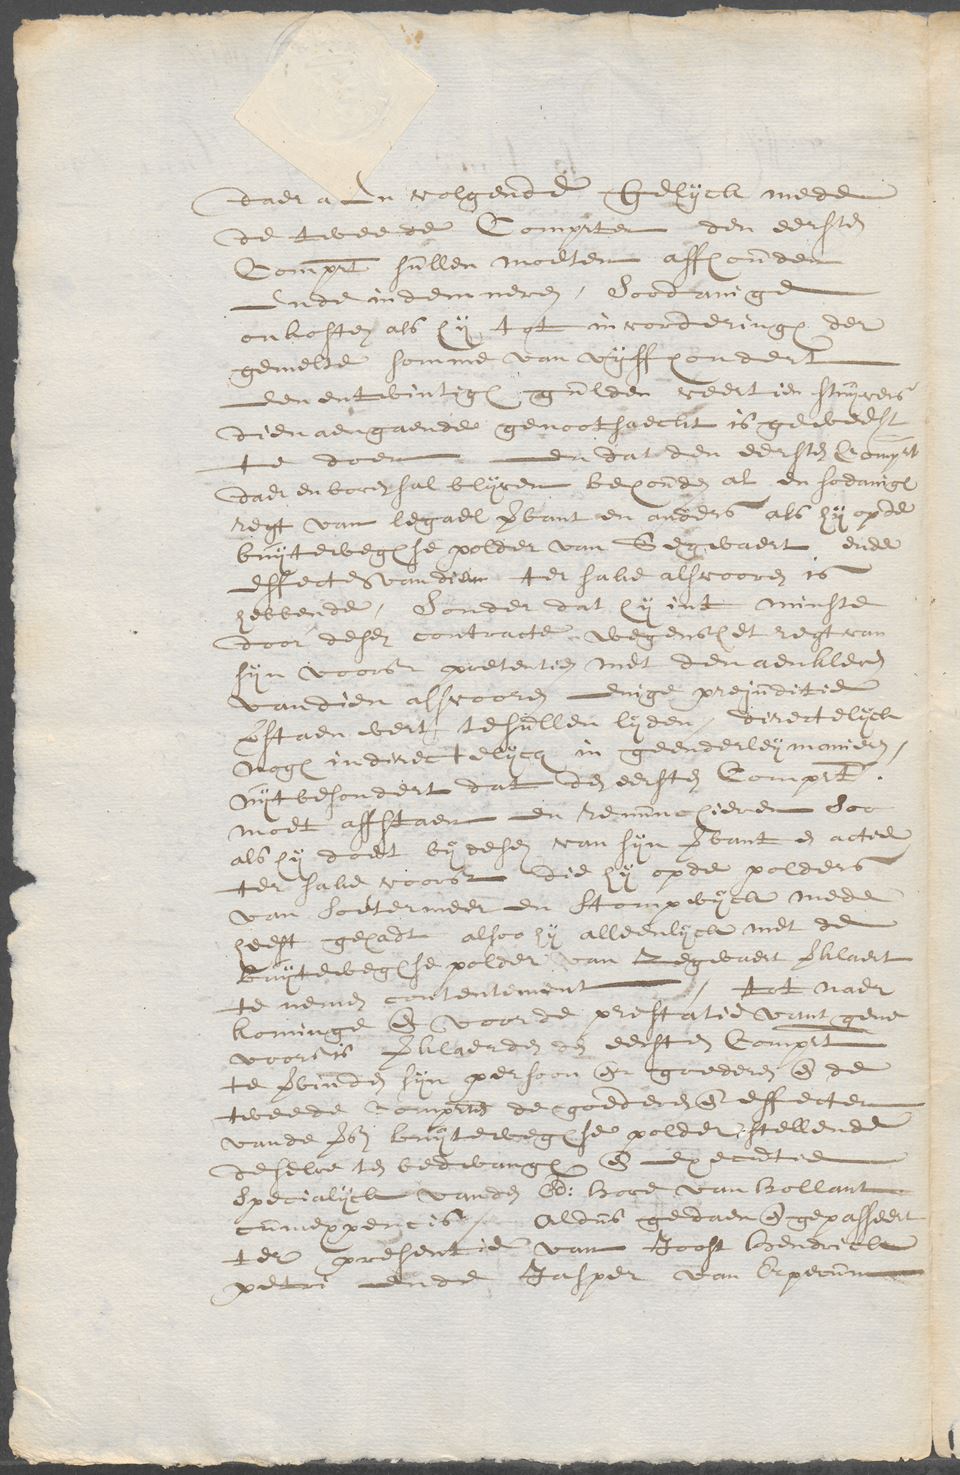 daer aen volgende Gelyck mede
de tweede Comprten den eersten
Comprt sullen moeten affhouden
ende indemneren, Soodanige
onkosten als hij tot invorderingh der
gemelte somme van vijffhondert
eenentwintigh gulden veertien stuyvers
dienaengaende genootsaeckt is geweest
te doen en dat den eersten Comprt
daerenboven sal blyven behouden al en sodanigh
regt van legael verbant en anders als hij op de
buyteweghse polder van Segwaert ende
effecten van dien ter sake als vooren is
hebbende, Sonder dat hij int minste
door desen contracte wegens het regt van
syn voorsz pretentien met den aenkleven
van dien als vooren enige prejuditie
verstaen wert te sullen lyden, directelyck
nogh indirectelyck in geenderley manieren,
uytbesondert dat den eersten Comprt.
moet affstaen en renunchieren Soo
als hij doet by desen van syn verbant en actie
ter sake voorsz die hij op de polders
van Soetermeer en Stompwyck mede
heeft gehadt alsoo hij alleenlyck met de
buyteweghse polder van Zegwaert verklaert
te nemen contentement, tot naer
kominge en voorde prestatie vant gene
voorsz is verklaerden den eersten Comprt
te verbinden syn persoon en goederen en de
tweede Comprten de goederen en effecten
vande buyteweghse polder, stellende
deselve ten bedwangh en executie
Specialyck vanden Ed: hove van hollant
cum expencis, Aldus gedaen en gepasseert
ter presentie van Joost hendrick
petri ende Jasper van Erpecum